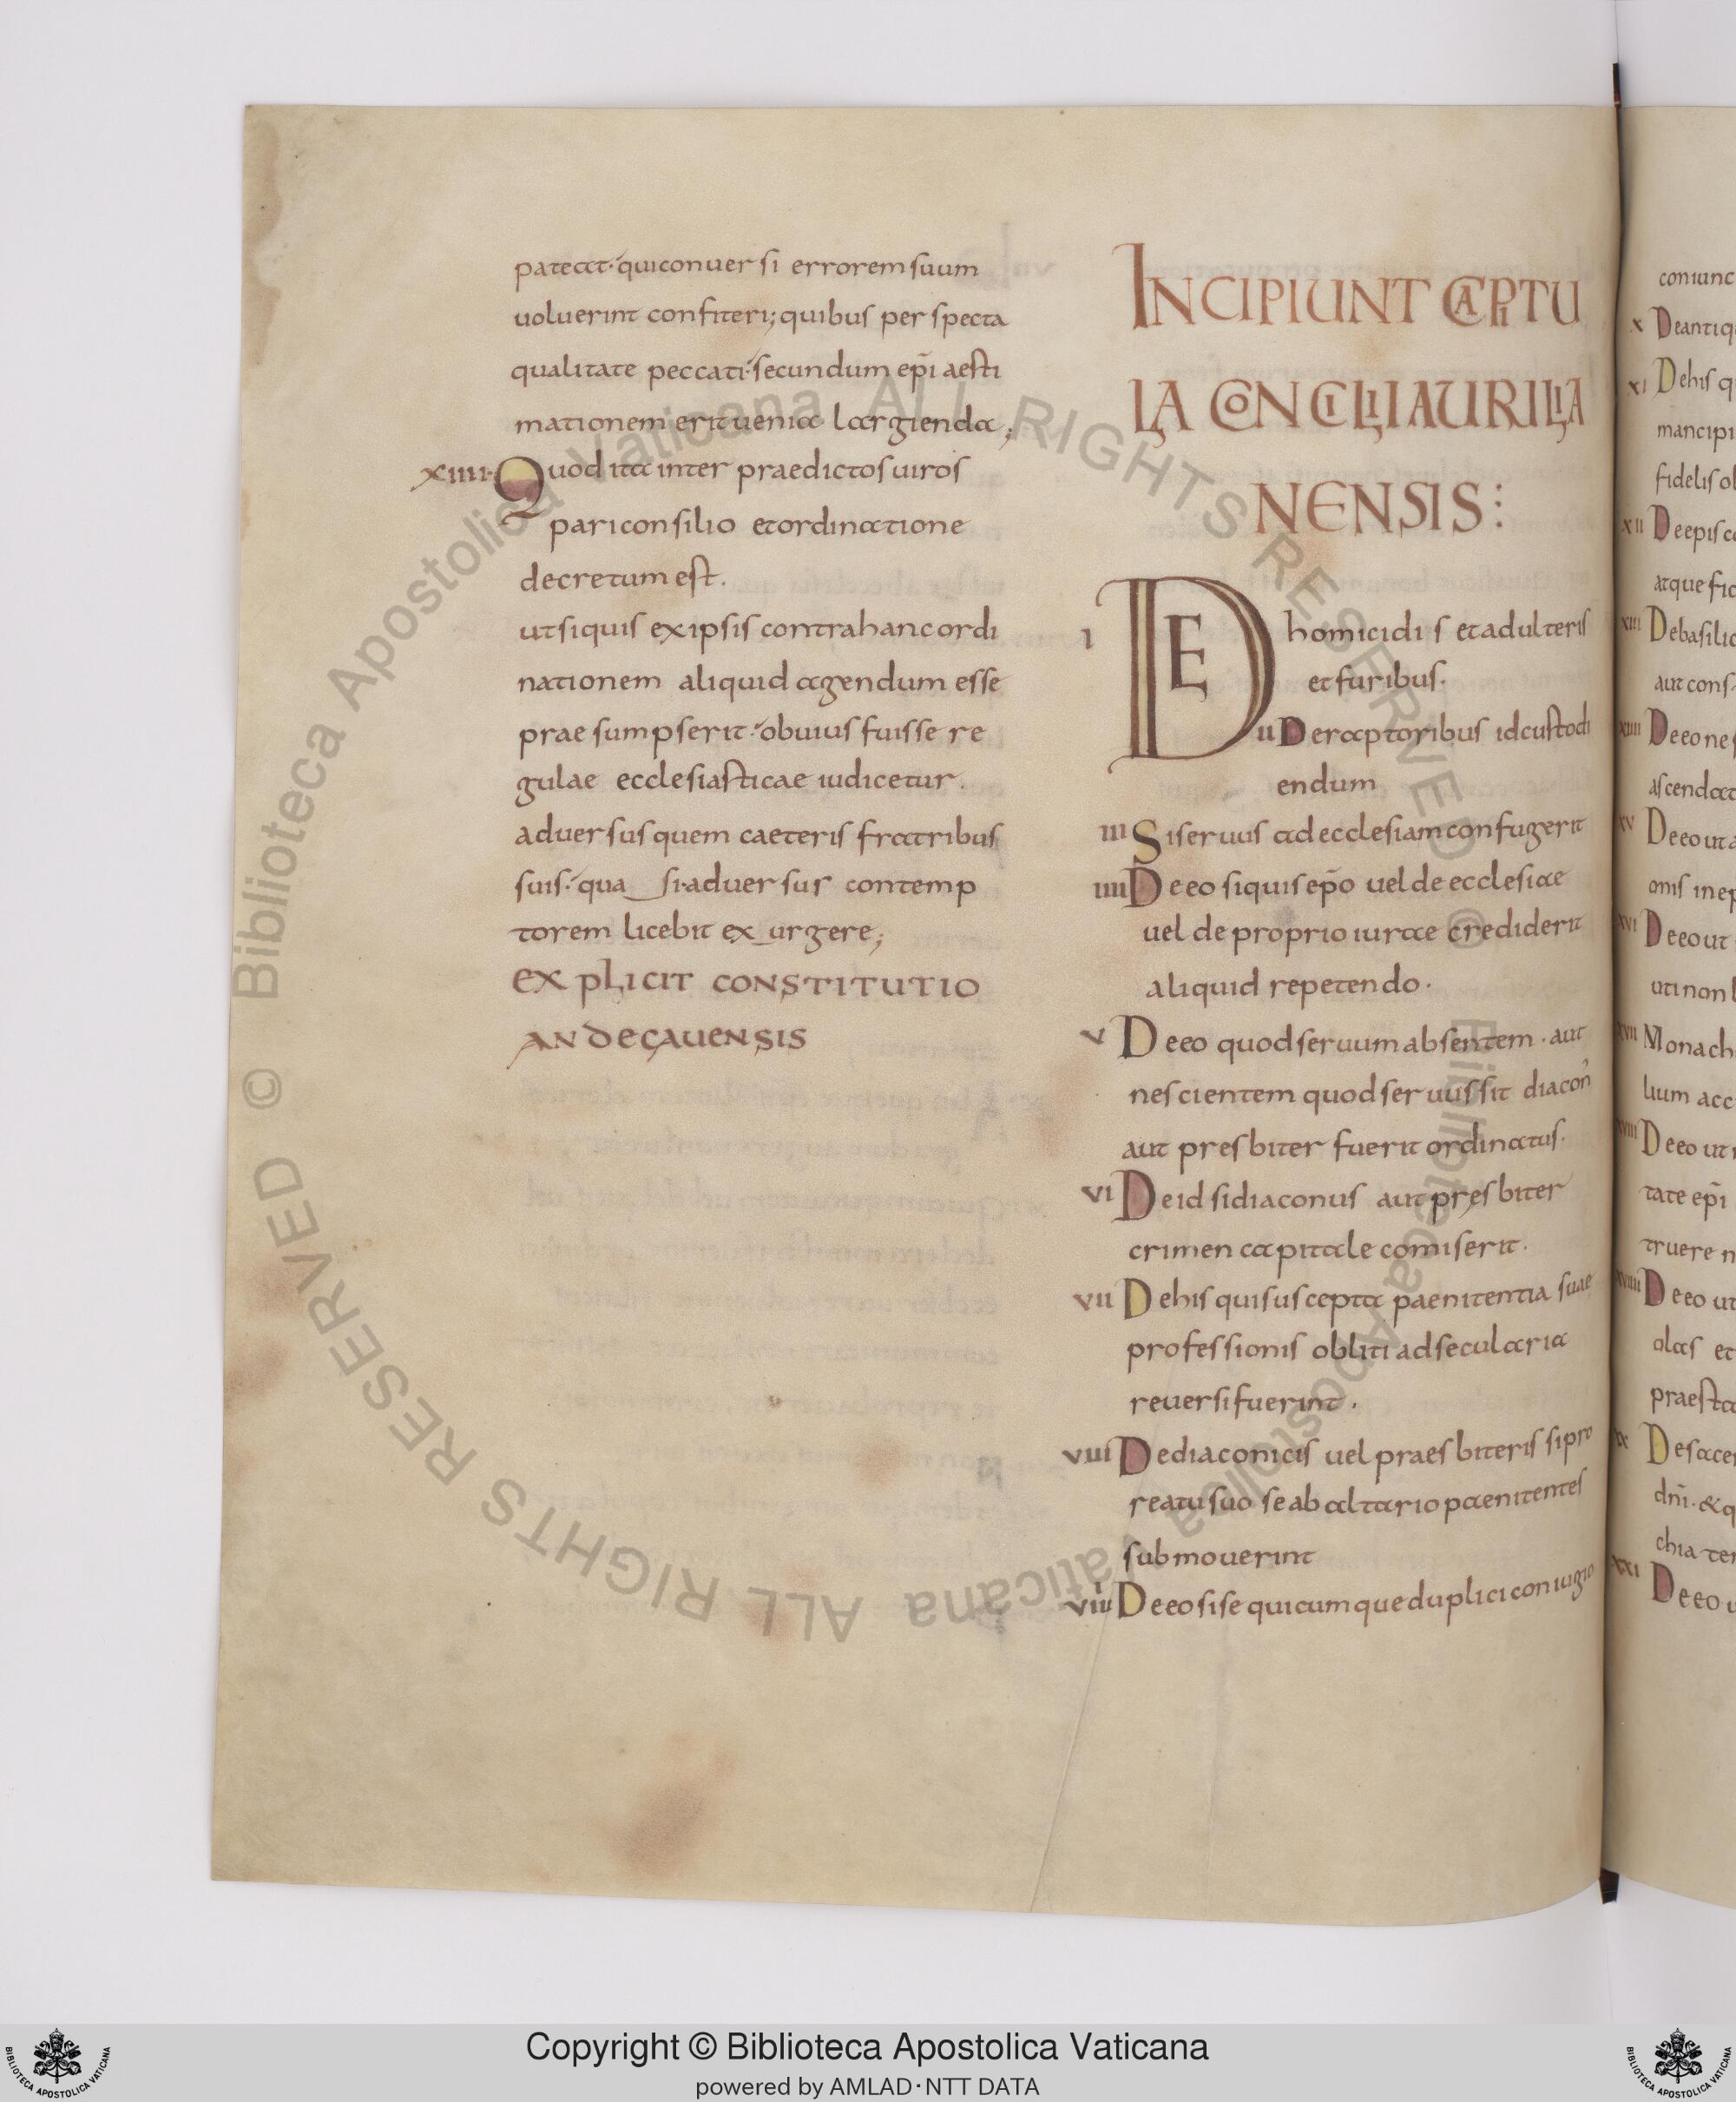 pateat. qui conuersi errorem suum
uoluerint confiteri; quibus perspecta
qualitate peccati. secundum ep̄i aesti
mationem erit uenia largienda;
xiiii. Quod ita inter praedictos uiros
pari consilio et ordinatione
decretum est.
ut si quis ex ipsis contra hanc ordi
nationem aliquid agendum esse
praesumpserit. obuius fuisse re
gulae ecclesiasticae iudicetur.
aduersus quem caeteris fratribus
suis. qua si aduersus contemp
torem licebit ex urgere;
EXPLICIT CONSTITUTIO
ANDECAUENSIS
INCIPIUNT CAPITU
LA CONCILII AURILIA
NENSIS:
i DE homicidis et adulteris
et furibus.
ii De raptoribus id custodi
endum
iii Si seruus ad ecclesiam confugerit
iiii De eo si quis ep̄o uel de ecclesiae
uel de proprio iurae crediderit
aliquid repetendo.
v De eo quod seruum absentem. aut
nescientem quod seruus sit diacon
aut presbiter fuerit ordinatus.
vi De id si diaconus aut presbiter
crimen capitale comiserit.
vii De his qui suscepta paenitentia suae
professionis obliti ad secularia
reuersi fuerint.
viii De diaconicis uel praesbiteris si pro
reatu suo se ab altario paenitentes
submouerint
viiii De eo si se quicumque duplici coniugio
coniunc
x De antiq
xi De his q
mancipi
fidelis ol
xii De episco
atque fic
xiii De basilic
aut cons
xiiii De eo ne s
ascendat
xv De eo ut a
onis in ep
xvi De eo ut
uti non l
xvii Monach
lium acc
xviii De eo ut
tate ep̄i
truere n
xviiii De eo ut
olas et
praesta
xx De sacer
dn̄i. & q
chia ter
xxi De eo u
Biblioteca Apostolica Vaticana ALL RIGHTS RESERVED ©
Biblioteca Apostolica Vaticana ALL RIGHTS RESERVED ©
Copyright © Biblioteca Apostolica Vaticana
powered by AMLAD·NTT DATA
BIBLIOTECA APOSTOLICA VATICANA
BIBLIOTECA APOSTOLICA VATICANA